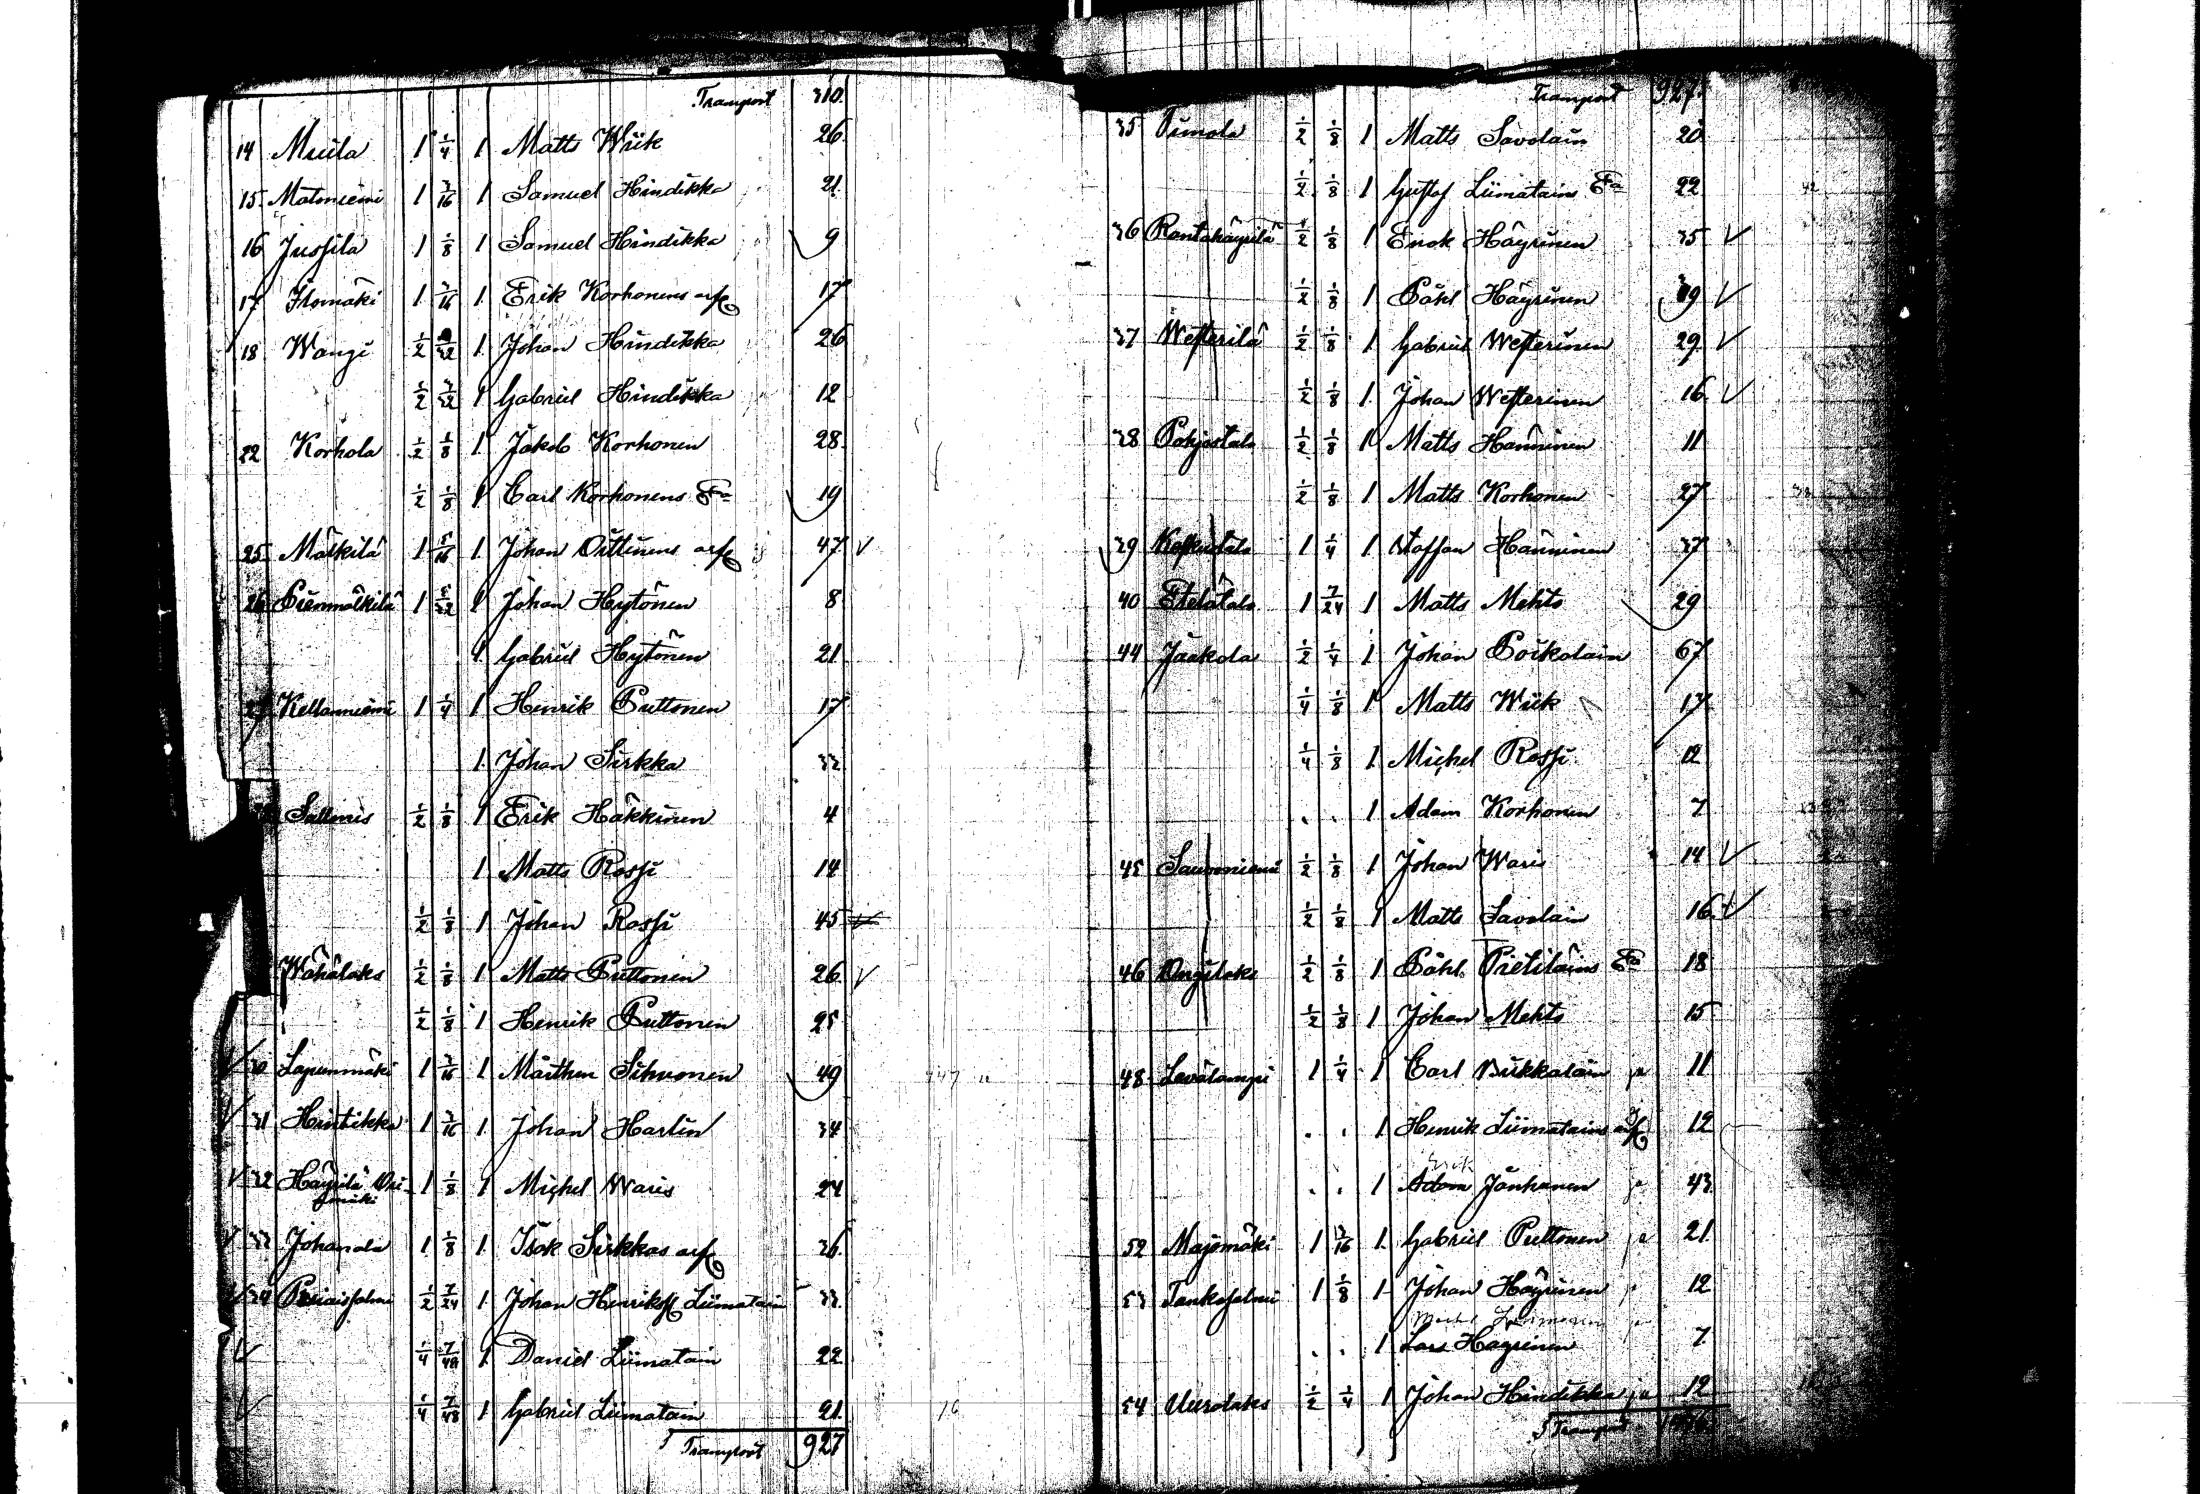 Transport 310.
14 Muula 1 1/4 1 Matts Wiik 26.
15. Matoniemi 1 3/16 1 Samuel Hindikka 21.
16 Jussila 1 1/8 1 Samuel Hindikka 9
17 Ilomäki 1 3/16 1. Erik Korhonens arf 17
18 Wangi 1/2 1 Johan Hindikka 26
1/2 3/32 1 Gabriel Hindikka 12
22 Korhola 1/2 1/8 1 Jakob Korhonen 28.
1/2 1/8 1 Carl Korhonens Ea 19
25 Mälkilä 1 5/16 1. Johan Oittinens arf 47 V
26 Pienmälkilä 1 5/32 1 Johan Hytönen 8.
1 Gabriel Hytönen 21
27 Kellanniemi 1 1/4 1 Henrik Puttonen 17
1. Johan Sirkka 32
1/2 1/8 1 Erik Häkkinen 4
1 Matts Rossi 14
1/2 1/8 1 Johan Rossi 45
Wähälaks 1/2 1/8 1 Matts Puttonen 26. V
1/2 1/8 1 Henrik Puttonen 25
V 30 Lapunmäki 1 3/16 1 Mårthen Sihvonen 49
V 31 Hintikka 1 3/16 1. Johan Harlin 34
V 32 Häyrilä 1 1/8 1 Michel Waris 24
mäki
V 33 Johanala 1 1/8 1. Isak Sirkkas arf 36
V 34 1/2 7/24 1. Johan Henriks Liimatain 33.
V 1/4 7/48 1. Daniel Liimatain 22
V 1/4 7/48 1 Gabriel Liimatain 21.
Transport 927
Transport 927.
35 Timola 1/2 1/8 1 Matts Savolain 20
1/2 1/8 1 Gustaf Liimatains Ea 22
36 Rantahäyrilä 1/2 1/8 1 Enok Häyrinen 35 V
1/2 1/8 1 Påhl Häyrinen 39 V
37 Westerilä 1/2 1/8 1 Gabriel Westerinen 29. V
1/2 1/8 1. Johan Westerinen 16. V
38 Pohjostalo 1/2 1/8 1 Matts Hänninen 11
1/2 1/8 1 Matts Korhonen 27
39 Keskitalo 1 1/4 1 Staffan Hänninen 37
40 Etelätalo 1 7/24 1 Matts Mehto 29
44 Jaakola 1/2 1/4 1 Johan Poikolain 67
1/4 1/8 1 Matts Wiik 17
1/4 1/8 1. Michel Rossi 12
. . 1 Adam Korhonen 7
45 Sauvoniemi 1/2 1/8 1 Johan Waris 14 V
1/2 1/8 1 Matts Savolain 16. V
46 Ongilaks 1/2 1/8 1 Påhl Pietiläins Ea 18
1/2 1/8 1 Johan Mehto 15
48 Levälampi 1 1/4 1 Carl Kukkalain ja 11
. . 1 Henrik Liimatains arf 12
Erik
. . 1 Adam Jänhanen ja 43
52 Majomäki 1 3/16 1. Gabriel Puttonen ja 21.
53 Tankosalmi 1 1/8 1 Johan Häyrinen ja 12
. . 1 Lars Häyrinen 7
54 Uurolaks 1/2 1/4 1 Johan Hindikka ja 12
Transport